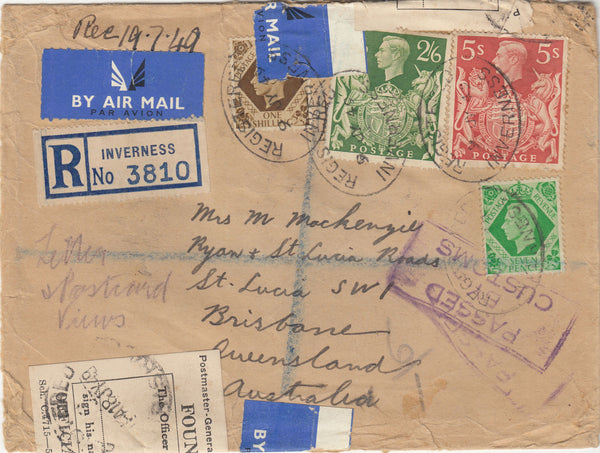 Rec 19.7.49
BY AIR MAIL
PAR AVION
R
INVERNESS
No 3810
MAIL
ONE
SHILL
2/6
POSTAGE
5s
5s
POSTAGE
POSTAGE REVENUE
SEVEN
PENCE
REGISTERED
INVERNESS
Mrs M Mackenzie
Ryan & St. Lucia Roads
St. Lucia SW1
Brisbane
Queensland
Australia
Letter
& Postcard
Views
PASSED
CUSTOMS
Postmaster-Genera
FOUN
The Officer
sign his na
OFFICIA
Sch. C4715
BY